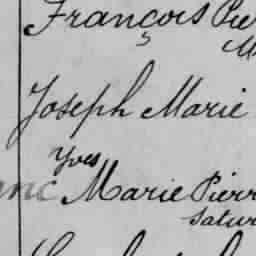 François
Joseph Marie
Yves
Marie Pierr
Satur